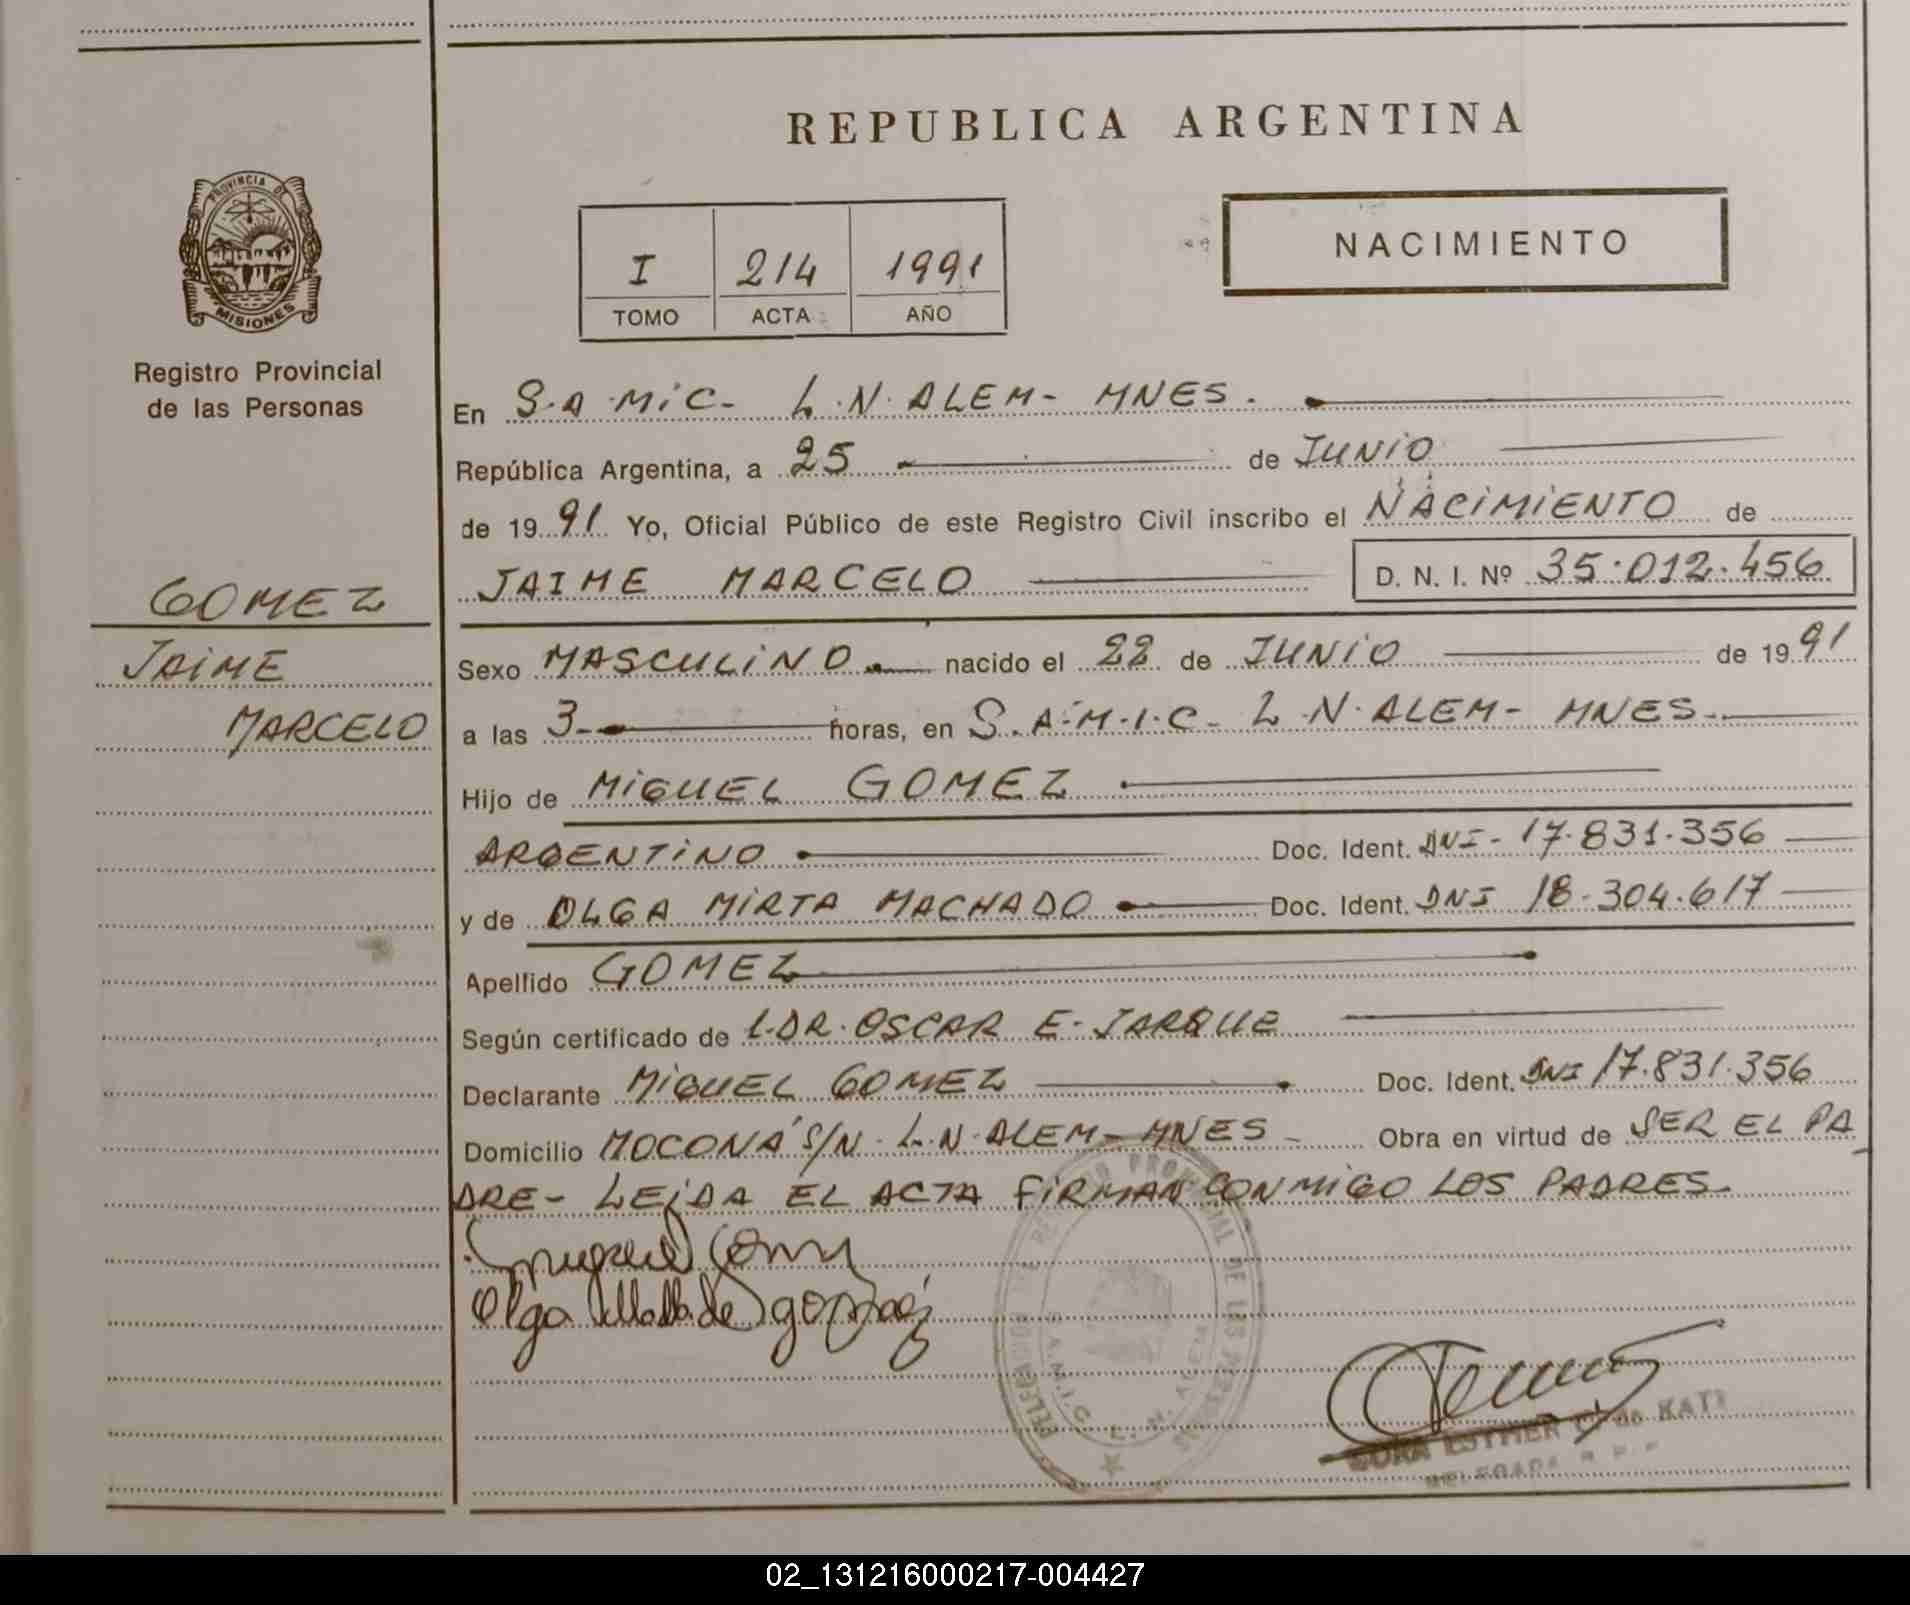 REPUBLICA ARGENTINA
PROVINCIA DE
MISIONES
Registro Provincial
de las Personas
I 214 1991
TOMO ACTA AÑO
NACIMIENTO
En S.A.MiC- L.N.ALEM- MNES.
República Argentina, a 25 de JUNiO
de 1991 Yo, Oficial Público de este Registro Civil inscribo el NACiMiENTO de
JAIME MARCELO D. N. I. Nº 35.012.456
GOMEZ
JAiME
MARCELO
Sexo MASCULiNO nacido el 22 de JUNiO de 1991
a las 3- horas, en S.A.M.I.C- L.N.ALEM- MNES-
Hijo de MiGUEL GOMEZ
ARGENTiNO Doc. Ident. DNI- 17.831.356
y de OLGA MiRTA MACHADO Doc. Ident. DNI 18.304.617
Apellido GOMEZ
Según certificado de L.DR.OSCAR E- JARQUE
Declarante MiGUEL GOMEZ Doc. Ident. DNI 17.831.356
Domicilio MOCONÁ S/N. L.N.ALEM- MNES- Obra en virtud de SER EL PA
DRE- LEiDA EL ACTA FiRMAN CONMiGO LOS PADRES-
Miguel Gomez
Olga de
DELEGACION DE PROVINCIAL DE LAS PERSONAS
S.A.M.I.C. L.N. ALEM
ESTHER de KATZ
DELEGADA R.P.P
02_131216000217-004427